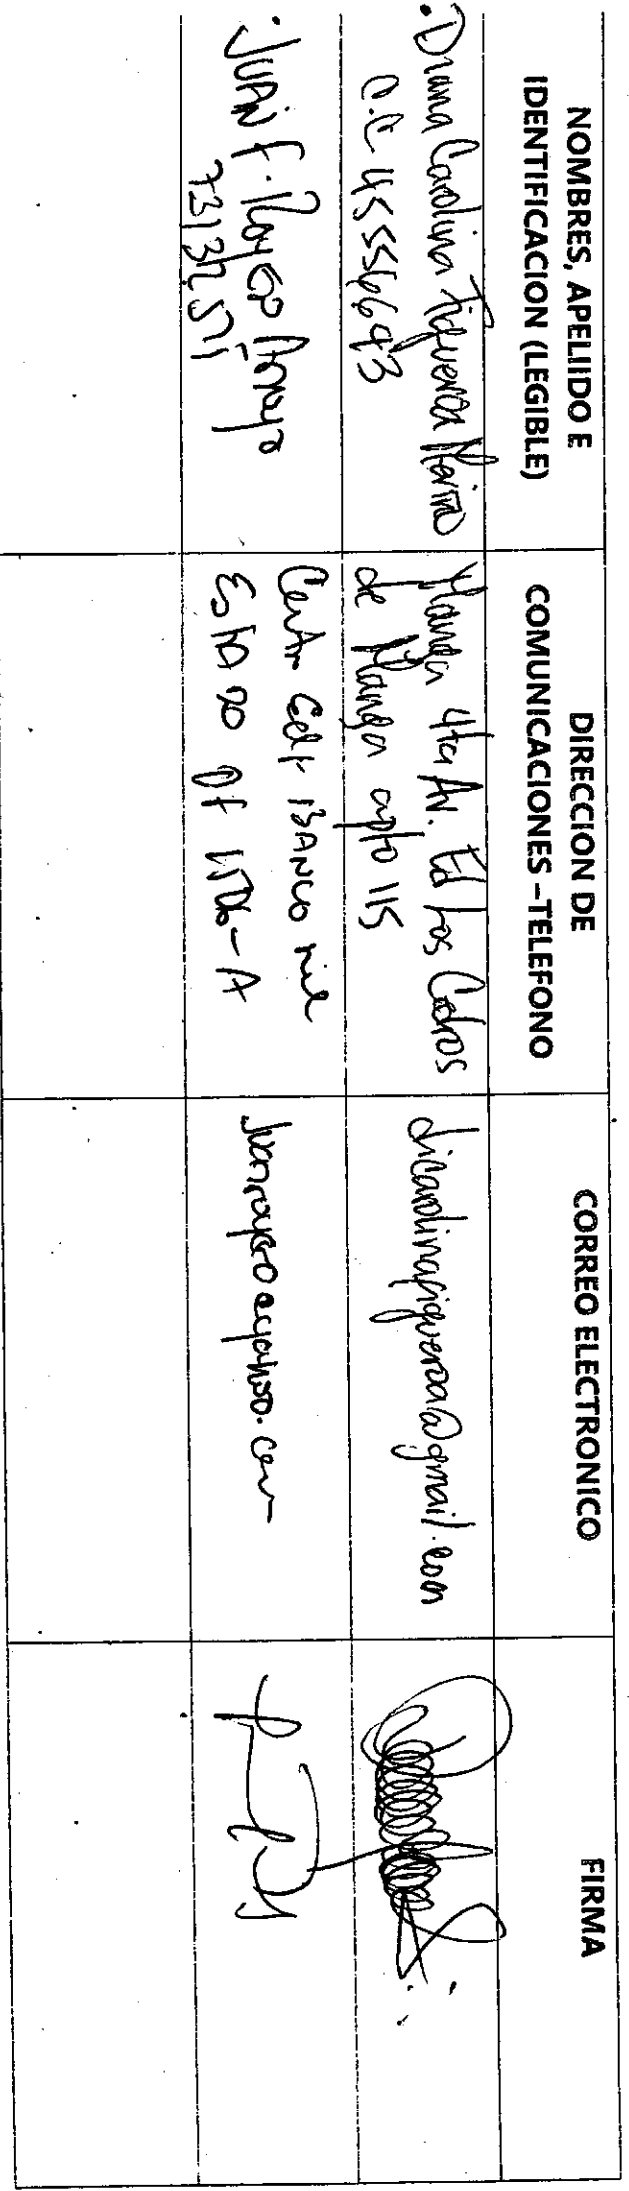 NOMBRES, APELIIDO E
IDENTIFICACION (LEGIBLE)
DIRECCION DE
COMUNICACIONES –TELEFONO
CORREO ELECTRONICO
FIRMA
Diana Carolina Figueroa
C.C 45556643
Manga 4ta Av. Ed Los Cedros
de Manga apto 115
dicarolinafigueroa@gmail.com
JUAN F. Royero Arroyo
73132571
Centro Edif BANCO del
ESTADO of 1506-A
juanroyero@yahoo.com